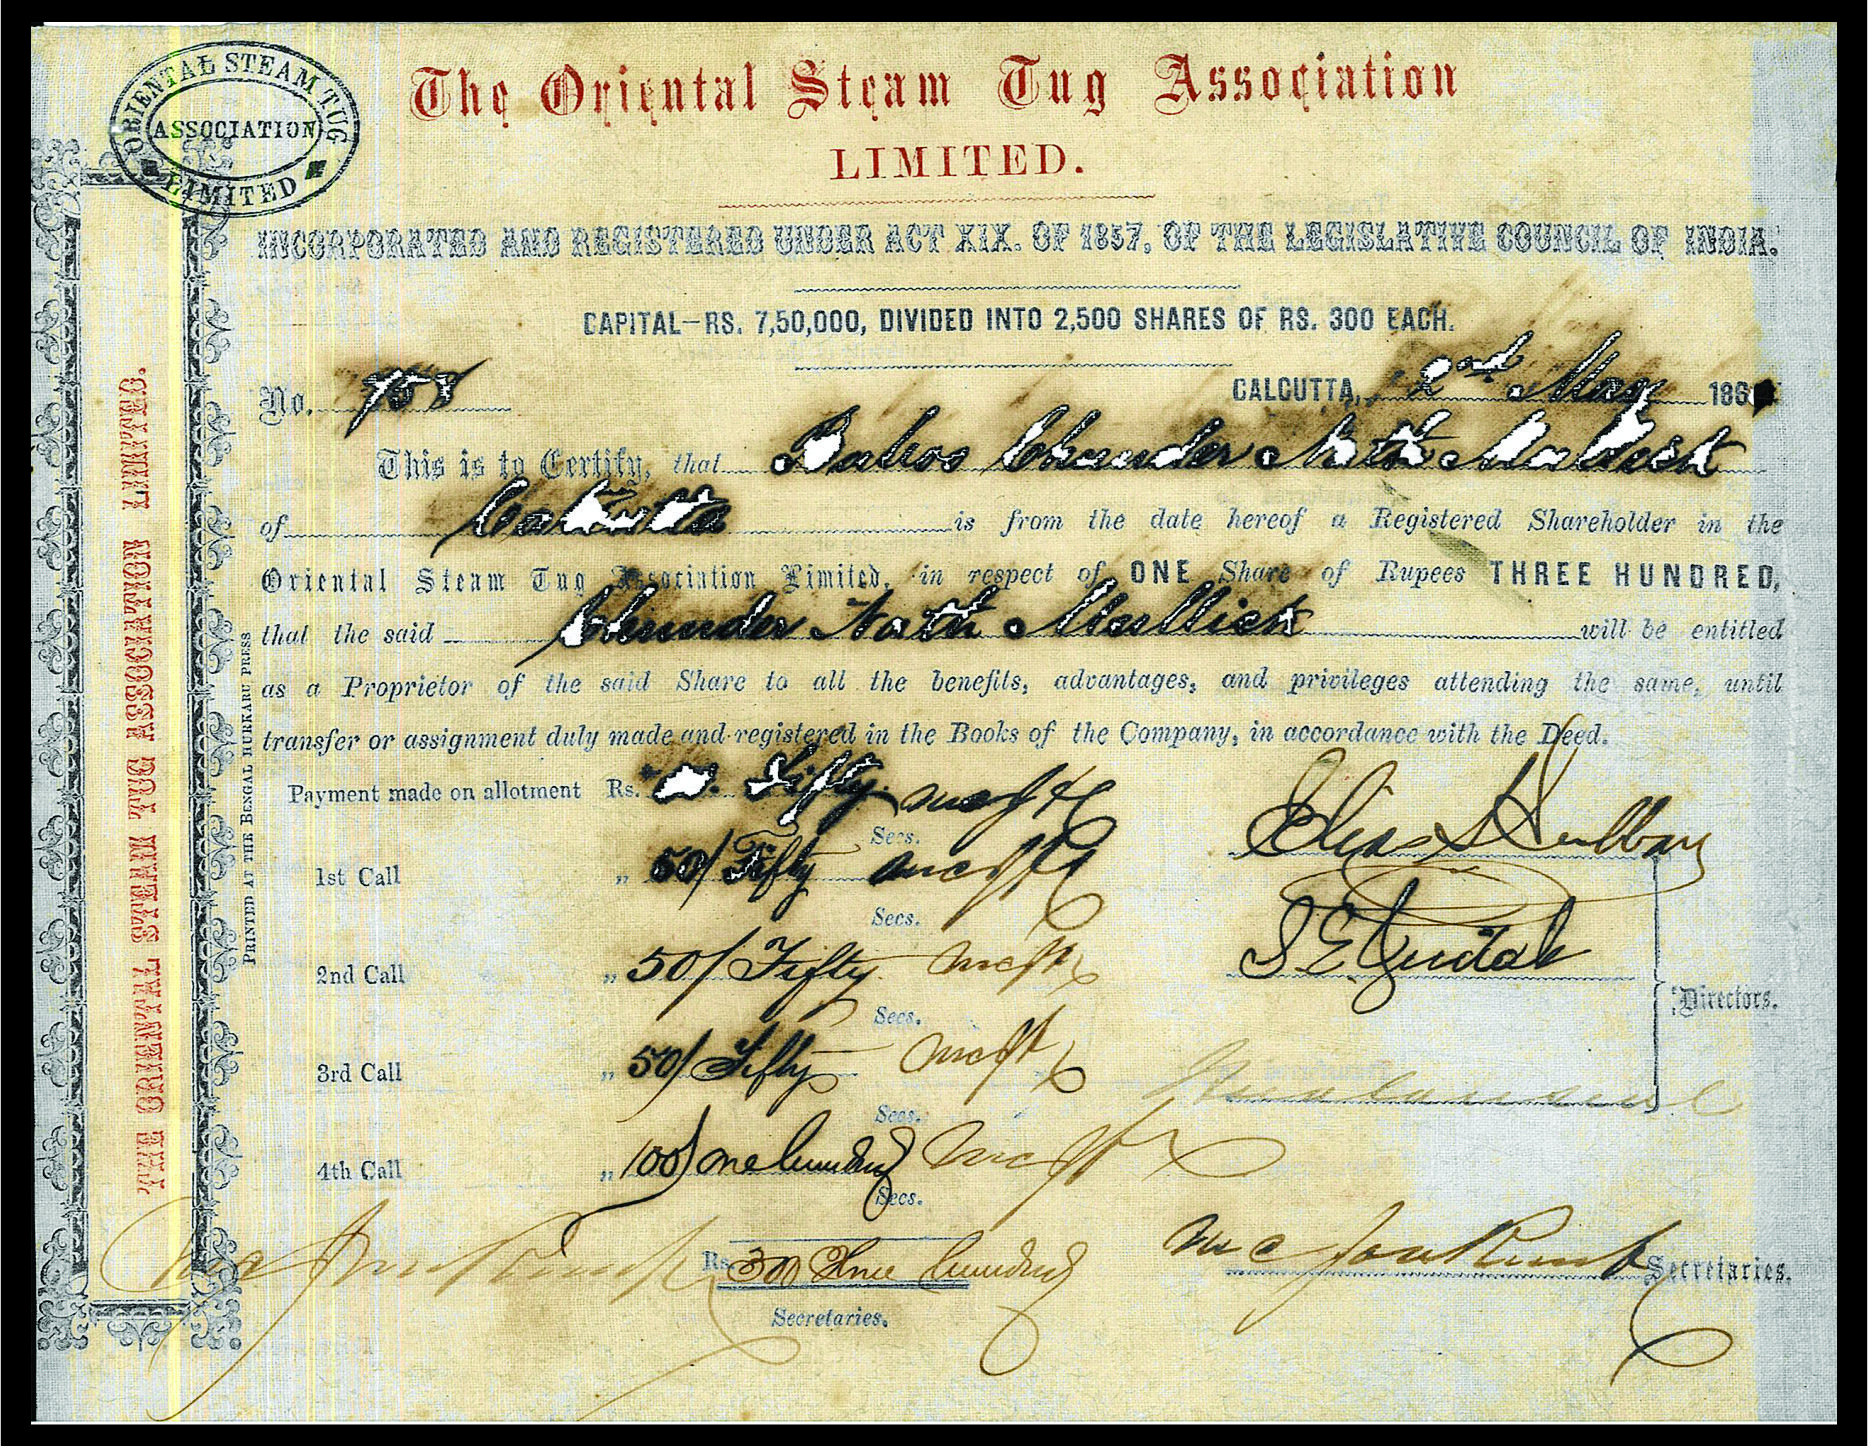 ORIENTAL STEAM TUG
ASSOCIATION
LIMITED
The Oriental Steam Tug Association
LIMITED.
INCORPORATED AND REGISTERED UNDER ACT XIX. OF 1857, OF THE LEGISLATIVE COUNCIL OF INDIA.
CAPITAL—RS. 7,50,000, DIVIDED INTO 2,500 SHARES OF RS. 300 EACH.
No. 758
CALCUTTA, 2nd May 186
This is to Certify, that Baboo Chunder Nath Mullick
of Calcutta is from the date hereof a Registered Shareholder in the
Oriental Steam Tug Association Limited, in respect of ONE Share of Rupees THREE HUNDRED,
that the said Chunder Nath Mullick will be entitled
as a Proprietor of the said Share to all the benefits, advantages, and privileges attending the same, until
transfer or assignment duly made and registered in the Books of the Company, in accordance with the Deed.
Payment made on allotment Rs. Fifty
Secs.
1st Call „ 50/ Fifty
Secs.
2nd Call „ 50/ Fifty
Secs.
3rd Call „ 50/ Fifty
Secs.
4th Call „ 100/ one hundred
Secs.
Rs. 300 Three hundred
Secretaries.
Directors.
Secretaries.
THE ORIENTAL STEAM TUG ASSOCIATION LIMITED.
PRINTED AT THE BENGAL HURKARU PRESS